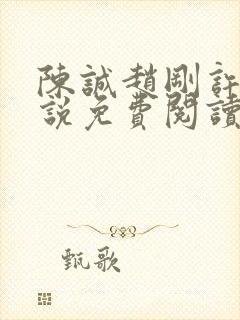 陳誠趙剛許
說免費閱讀
甄歌